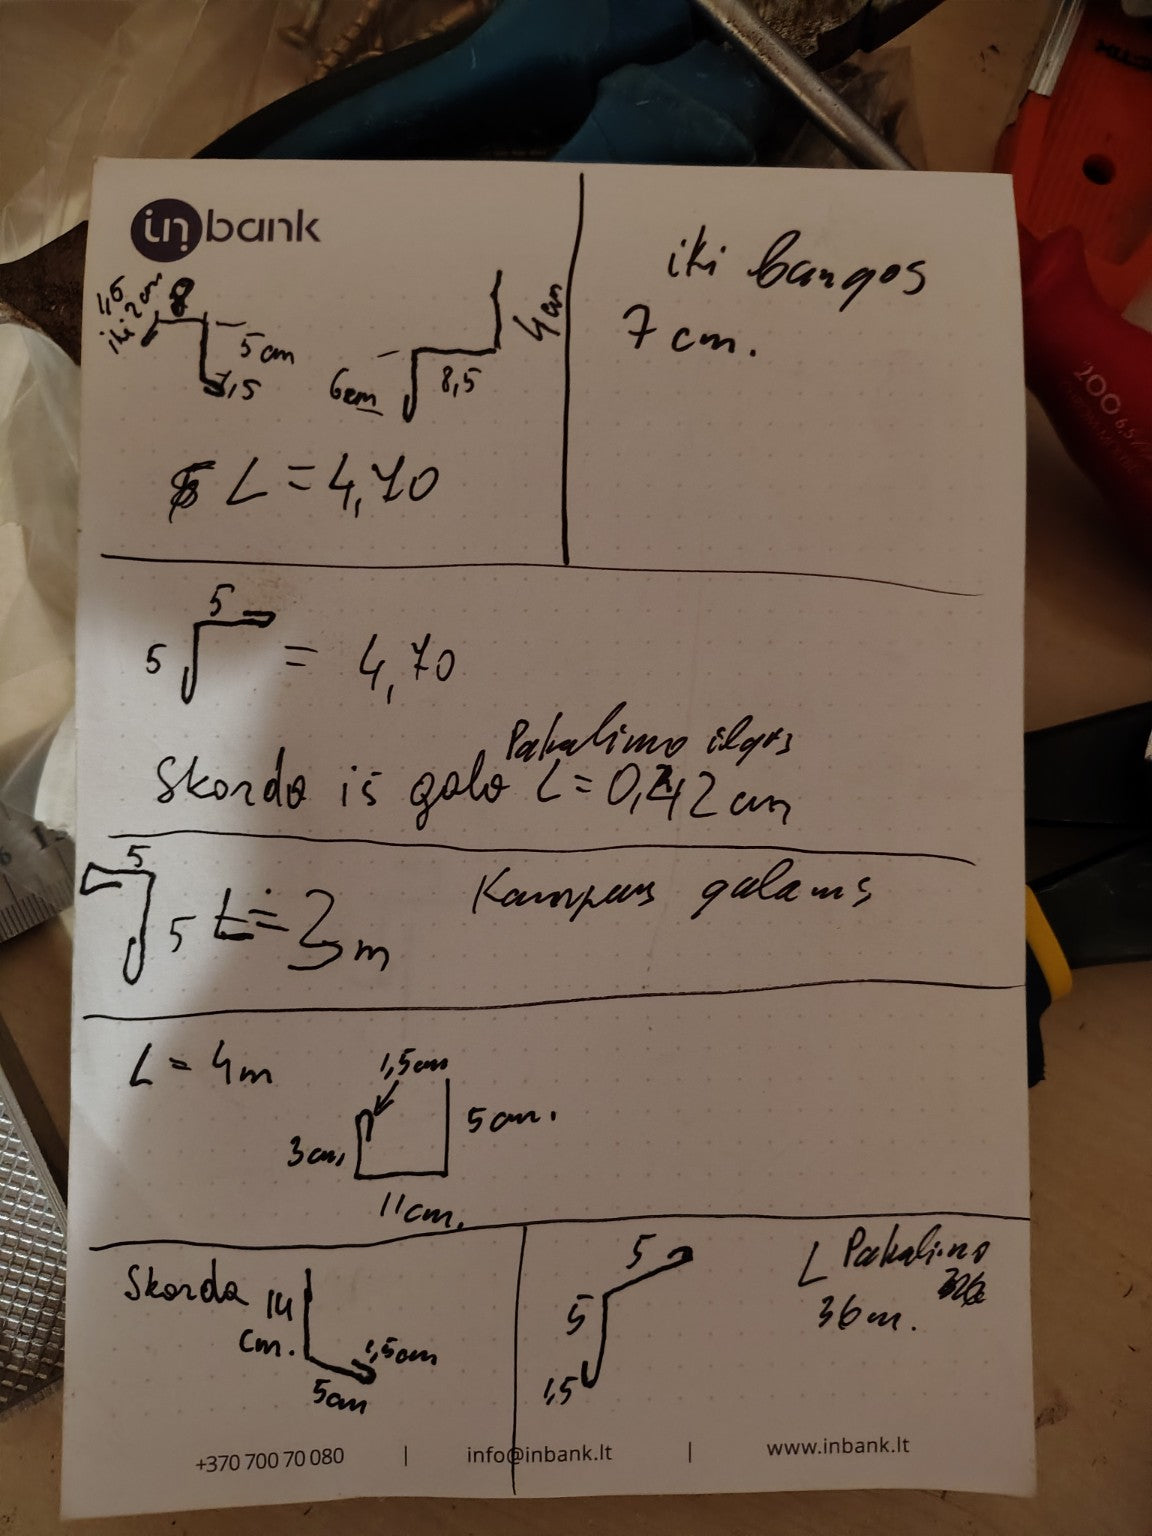 inbank
1,5
iki 2 cm
8
5 cm
1,5
6 cm
8,5
4 cm
L = 4,70
iki bangos
7 cm.
5
5
= 4,70
Pakalimo ilgis
Skarda iš galo L = 0,42 cm
5
5
L = 3 m
Kampas galams
L = 4 m
1,5 cm
3 cm,
5 cm.
11 cm.
Skarda
14
cm.
1,5 cm
5 cm
5
5
1,5
L Pakalimo
36 m.
+370 700 70 080 | info@inbank.lt | www.inbank.lt
200